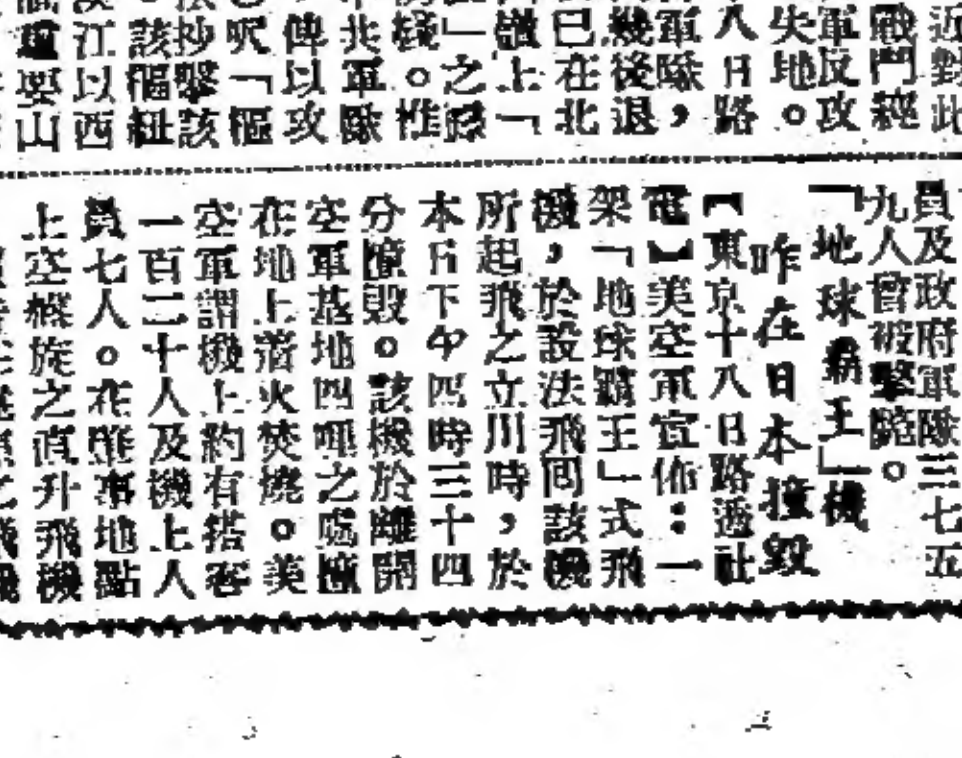 近對此
戰鬥經
軍反攻
失地。
八日路
軍隊，
幾後退
已在北
上「
」之
。惟
北軍隊
俾以攻
呎「樞
抄擊該
該樞紐
江以西
要山
員及政府軍隊三七五
九人曾被擊斃。
「地球霸王」機
昨在日本撞毀
【東京十八日路透社
電】美空軍宣佈：一
架「地球霸王」式飛
機，於設法飛回該機
所起飛之立川時，於
本日下午四時三十四
分撞毀。該機於離開
空軍基地四哩之處撞
在地上着火焚燒。美
空軍謂機上約有搭客
一百二十人及機上人
員七人。在肇事地點
上空盤旋之直升飛機